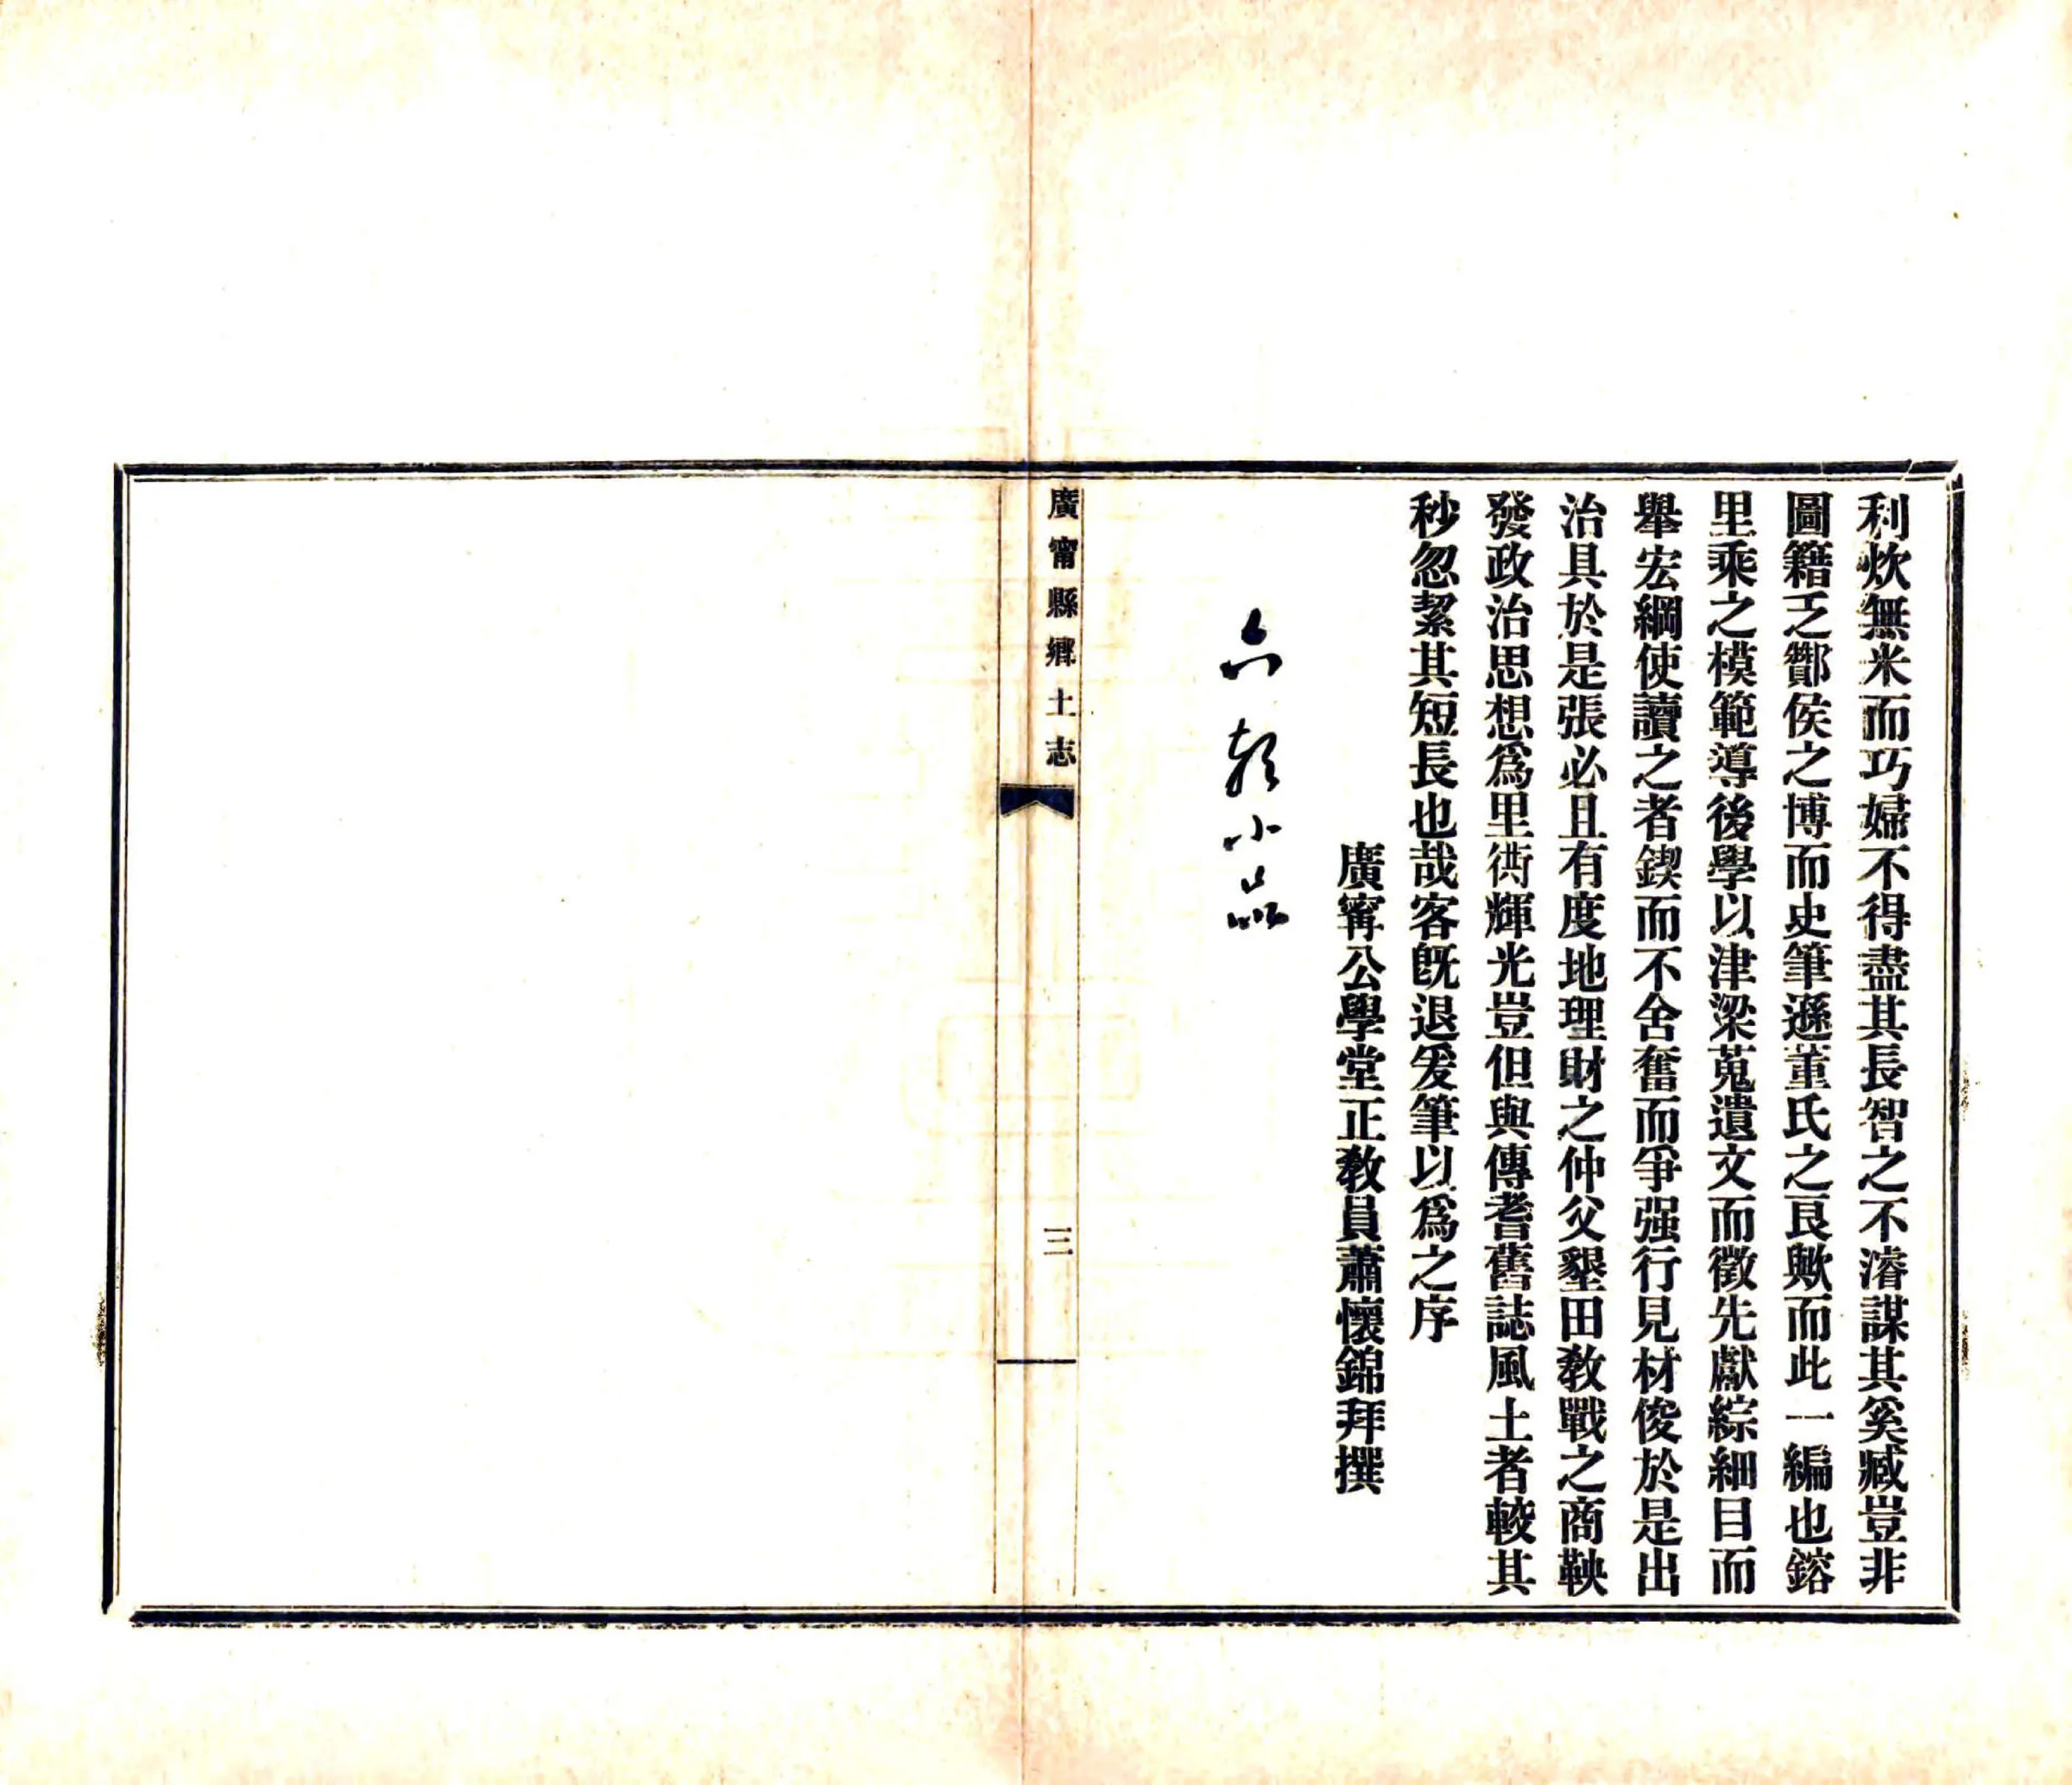 利炊無米而巧婦不得盡其長智之不濬謀其奚臧豈非
圖籍乏酇侯之博而史筆遜董氏之良歟而此一編也鎔
里乘之模範導後學以津梁蒐遺文而徵先獻綜細目而
舉宏綱使讀之者鍥而不舍奮而爭强行見材俊於是出
治具於是張必且有度地理財之仲父墾田教戰之商鞅
發政治思想爲里衖輝光豈但與傳耆舊誌風土者較其
秒忽絜其短長也哉客旣退爰筆以爲之序
廣甯公學堂正教員蕭懷錦拜撰
小品
廣甯縣鄉土志
三